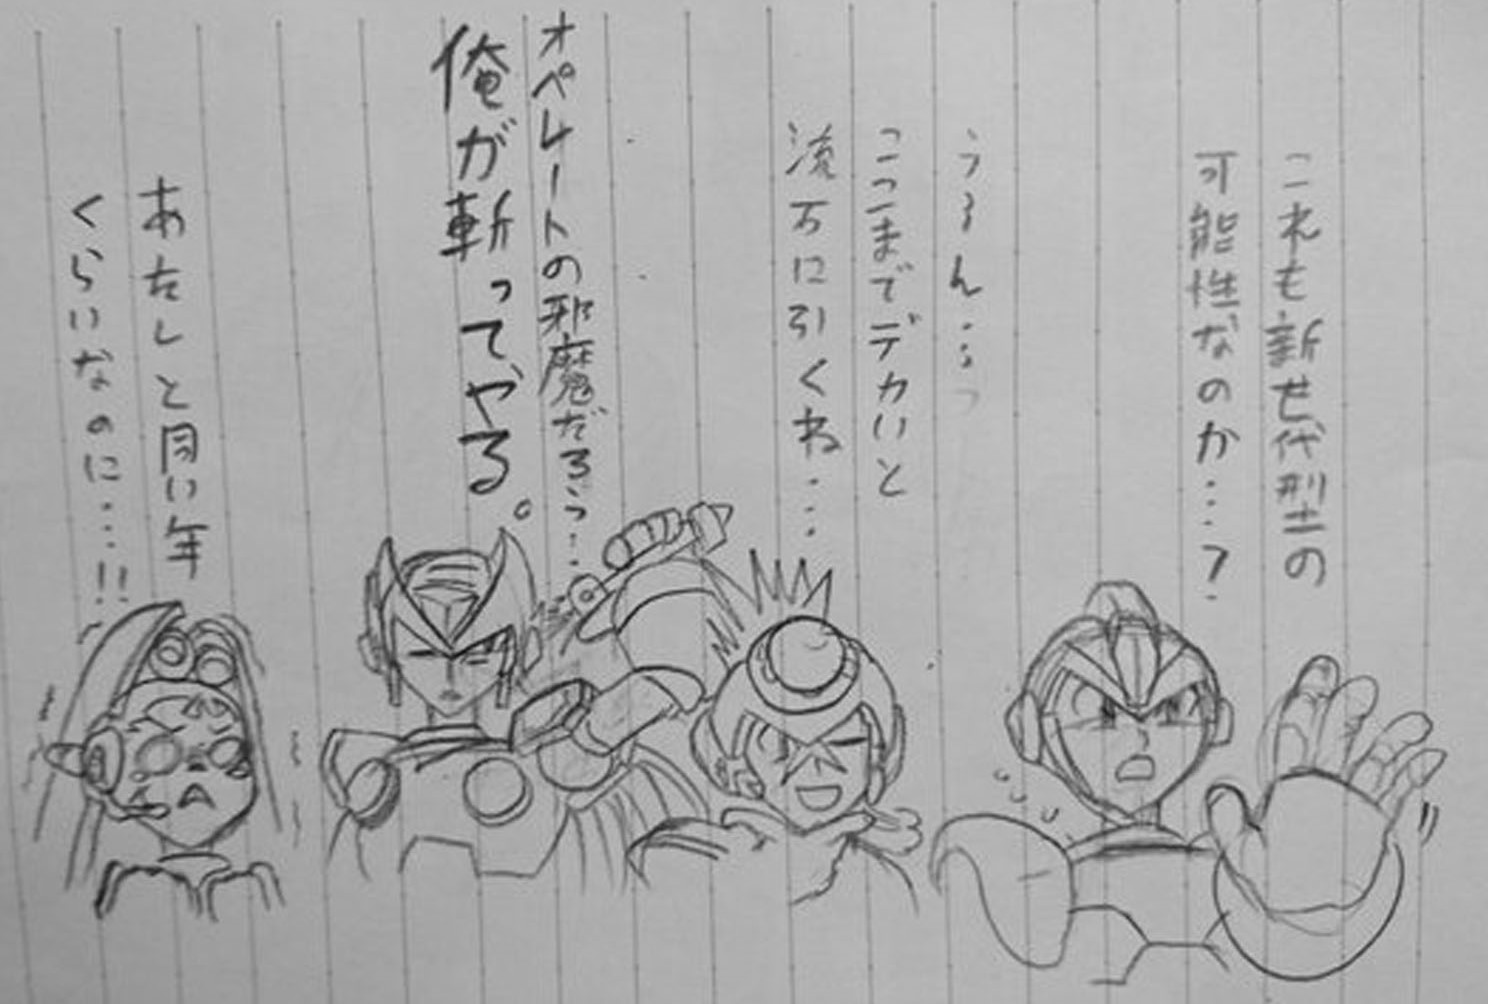 これも新世代型の
可能性なのか…?
うーん…
ここまでデカいと
流石に引くね……
オペレートの邪魔だろう…
俺が斬ってやる。
あたしと同い年
くらいなのに…!!